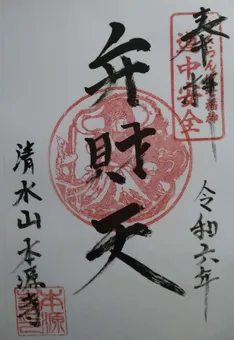 奉拝
道中安全
令和六年
弁財天
清水山本源寺
本源